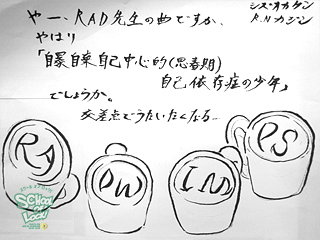 シズオカケン
R.N カジン
やー、RAD先生の曲ですか、
やはり
「自暴自棄自己中心的(思春期)
自己依存症の少年」
でしょうか。
交差点でうたいたくなる…
RA
DW
IM
PS
SCHOOL
OF
LOCK!